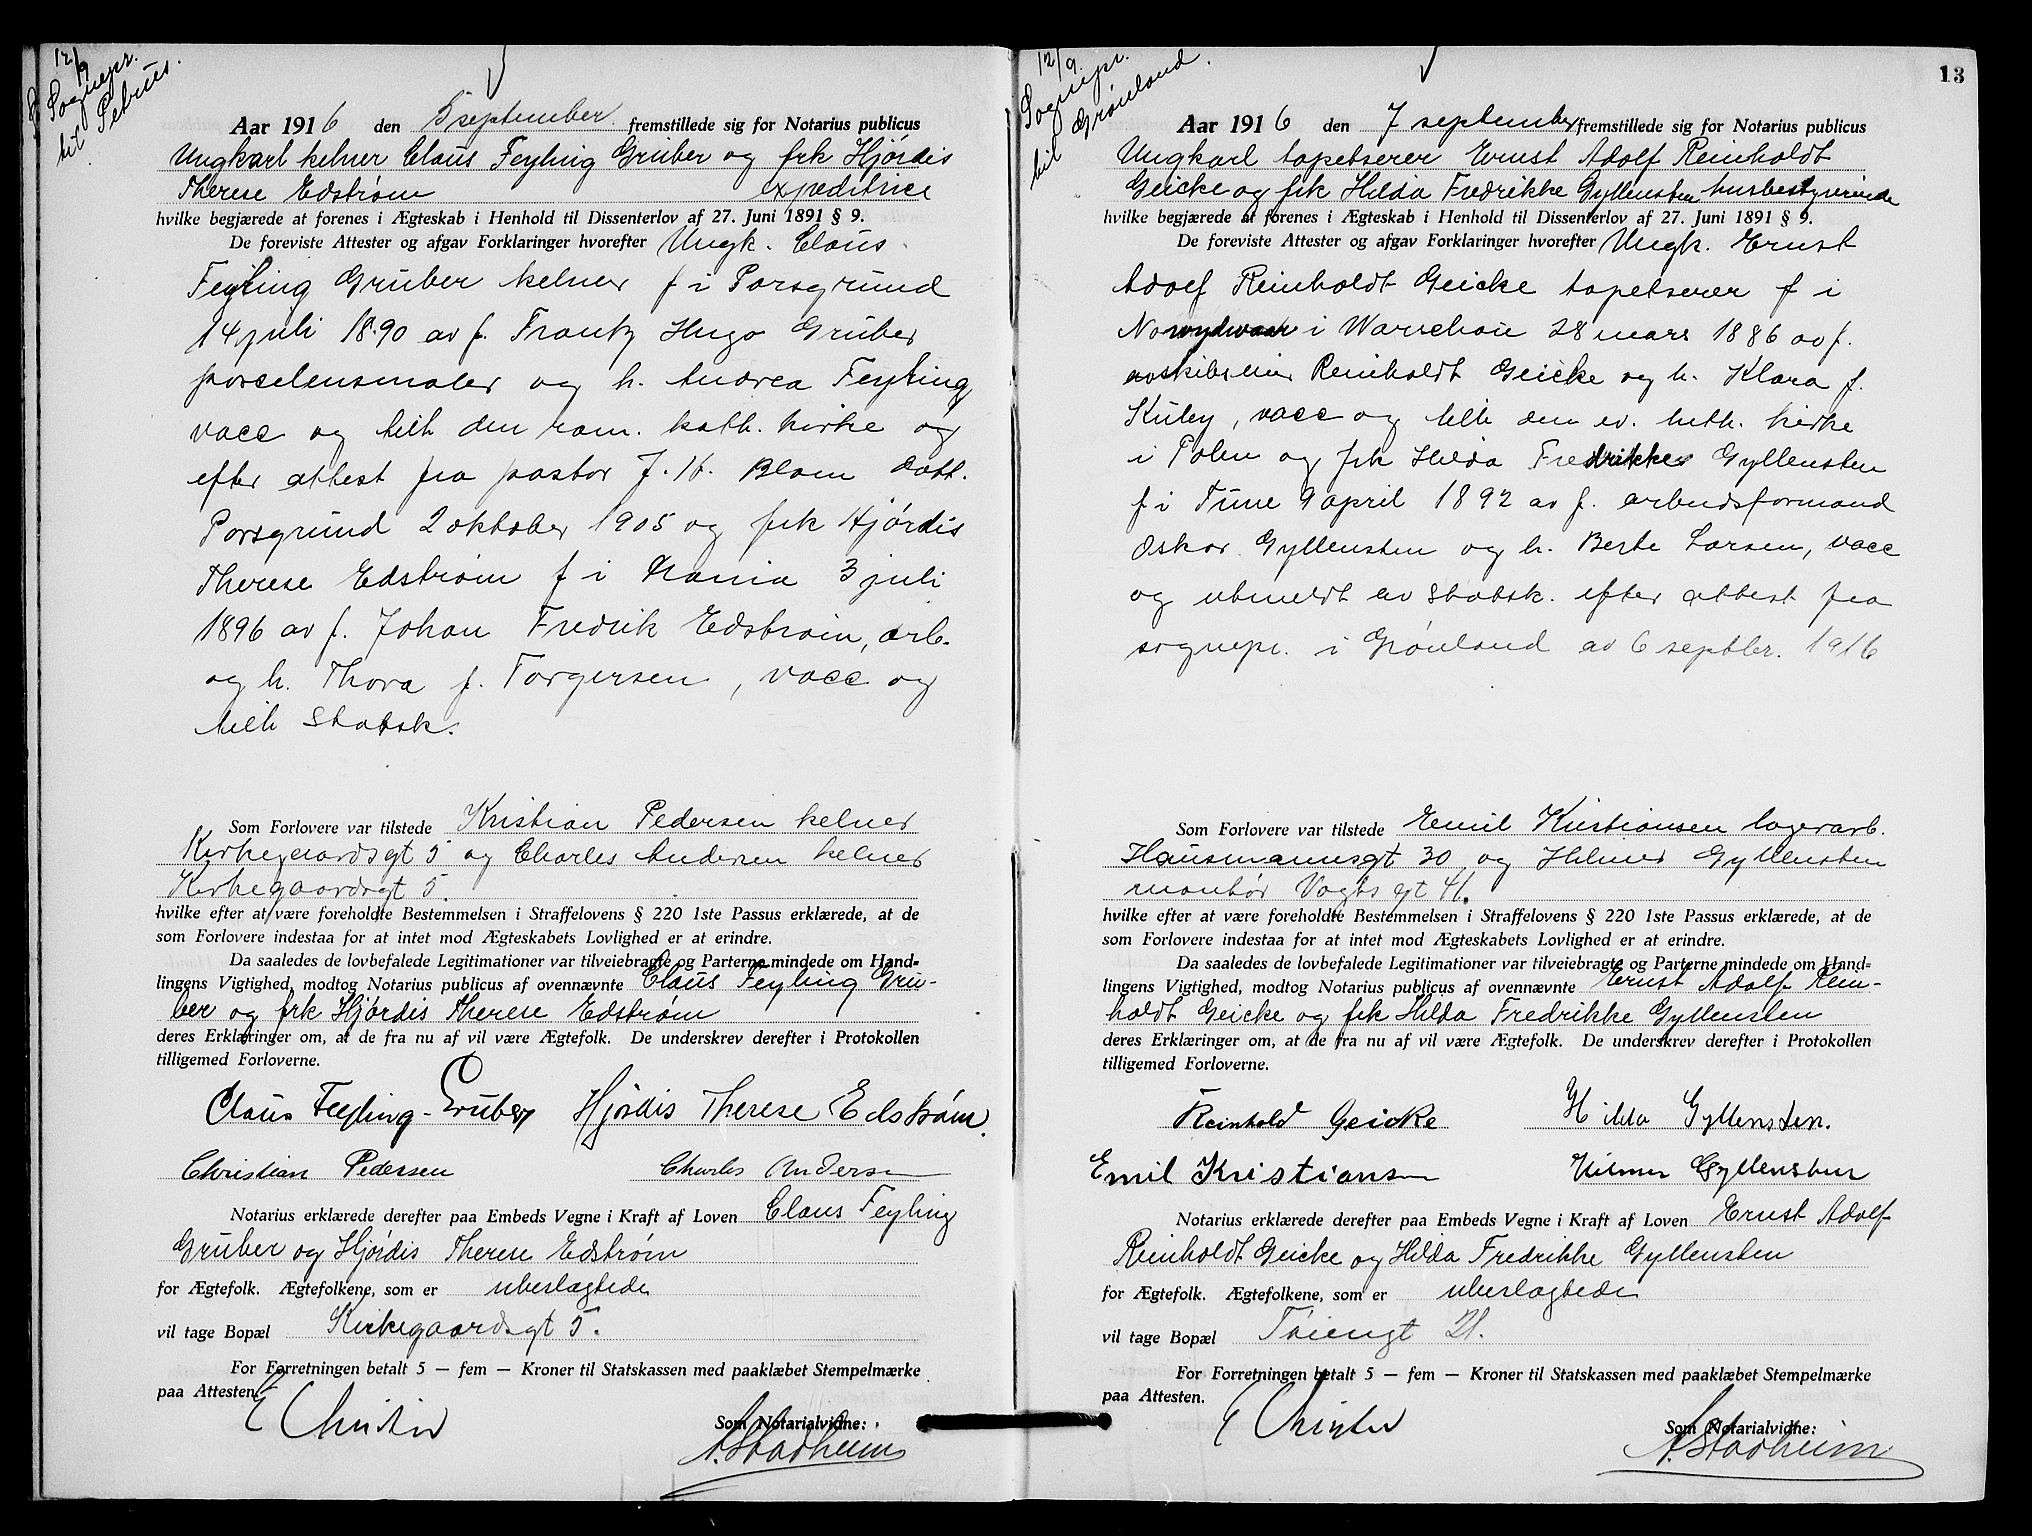 12/9
Sognepr.
til Petrus.
Aar 1916 den 5 september fremstillede sig for Notarius publicus
Ungkarl kelner Claus Feyling Gruber og frk Hjørdis
Therese Edstrøm expeditrice
hvilke begjærede at forenes i Ægteskab i Henhold til Dissenterlov af 27. Juni 1891 § 9.
De foreviste Attester og afgav Forklaringer hvorefter Ungk. Claus
Feyling Gruber kelner f i Porsgrund
14 juli 1890 av f. Frantz Hugo Gruber
porcelensmaler og h. Andrea Feyling,
vacc og tilh den rom. kath. kirke og
efter attest fra pastor J. H. Blom datt.
Porsgrund 2 oktober 1905 og frk Hjørdis
Therese Edstrøm f i Krania 3 juli
1896 av f. Johan Fredrik Edstrøm, arb.
og h. Thora f. Torgersen, vacc og
tilh Statsk.
Som Forlovere var tilstede Kristian Pedersen kelner
Kirkegaardsgt 5 og Charles Andersen kelner
Kirkegaardsgt 5.
hvilke efter at være foreholdte Bestemmelsen i Straffelovens § 220 1ste Passus erklærede, at de
som Forlovere indestaa for at intet mod Ægteskabets Lovlighed er at erindre.
Da saaledes de lovbefalede Legitimationer var tilveiebragte og Parterne mindede om Hand-
lingens Vigtighed, modtog Notarius publicus af ovennævnte Claus Feyling Gru-
ber og frk Hjørdis Therese Edstrøm
deres Erklæringer om, at de fra nu af vil være Ægtefolk. De underskrev derefter i Protokollen
tilligemed Forloverne.
Claus Feyling-Gruber Hjørdis Therese Edstrøm.
Christian Pedersen Charles Andersen
Notarius erklærede derefter paa Embeds Vegne i Kraft af Loven Claus Feyling
Gruber og Hjørdis Therese Edstrøm
for Ægtefolk. Ægtefolkene, som er uberlagtede
vil tage Bopæl Kirkegaardsgt 5.
For Forretningen betalt 5 — fem — Kroner til Statskassen med paaklæbet Stempelmærke
paa Attesten.
E Christie
Som Notarialvidne:
A. Stadheim
13
12/9.
Sognepr.
til Grønland.
Aar 1916 den 7 september fremstillede sig for Notarius publicus
Ungkarl tapetserer Ernst Adolf Reinholdt
Geicke og frk Hilda Fredrikke Gyllensten husbestyrerinde
hvilke begjærede at forenes i Ægteskab i Henhold til Dissenterlov af 27. Juni 1891 § 9.
De foreviste Attester og afgav Forklaringer hvorefter Ungk. Ernst
Adolf Reinholdt Geicke tapetserer f i
i Warschau 28 mars 1886 av f.
Reinholdt Geicke og h. Klara f.
vacc og tilh den ev. luth. kirke
i Polen og frk Hilda Fredrikke Gyllensten
f i Tune 9 april 1892 av f. arbeidsformand
Oskar Gyllensten og h. Berte Larsen, vacc
og utmeldt av Statsk. efter attest fra
sognepr. i Grønland av 6 septbr. 1916
Som Forlovere var tilstede Emil Kristiansen lagerarb.
Hausmannsgt 30 og Hilmer Gyllensten
montør Vogts gt 41.
hvilke efter at være foreholdte Bestemmelsen i Straffelovens § 220 1ste Passus erklærede, at de
som Forlovere indestaa for at intet mod Ægteskabets Lovlighed er at erindre.
Da saaledes de lovbefalede Legitimationer var tilveiebragte og Parterne mindede om Hand-
lingens Vigtighed, modtog Notarius publicus af ovennævnte Ernst Adolf Rein-
holdt Geicke og frk Hilda Fredrikke Gyllensten
deres Erklæringer om, at de fra nu af vil være Ægtefolk. De underskrev derefter i Protokollen
tilligemed Forloverne.
Reinhold Geicke Hilda Gyllensten.
Emil Kristiansen Hilmer Gyllensten
Notarius erklærede derefter paa Embeds Vegne i Kraft af Loven Ernst Adolf
Reinholdt Geicke og Hilda Fredrikke Gyllensten
for Ægtefolk. Ægtefolkene, som er uberlagtede
vil tage Bopæl Tøiengt 21.
For Forretningen betalt 5 — fem — Kroner til Statskassen med paaklæbet Stempelmærke
paa Attesten.
E Christie
Som Notarialvidne:
A. Stadheim